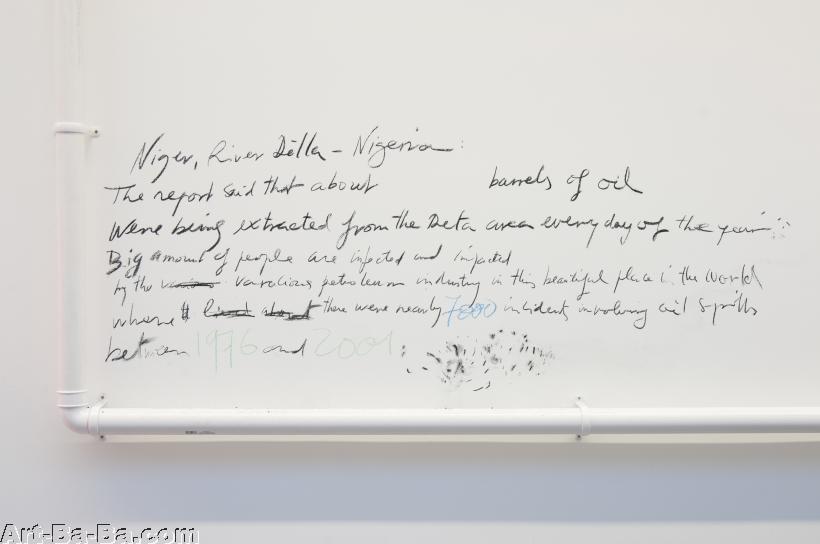 Niger, River Dèlla – Nigeria:
The report said that about barrels of oil
Were being extracted from the Delta area every day of the year
Big amount of people are infected and impacted
by the voracious petroleum industry in this beautiful place in the world
where lived about there were nearly 7000 incidents involving oil spills
between 1976 and 2001:
Art-Ba-Ba.com